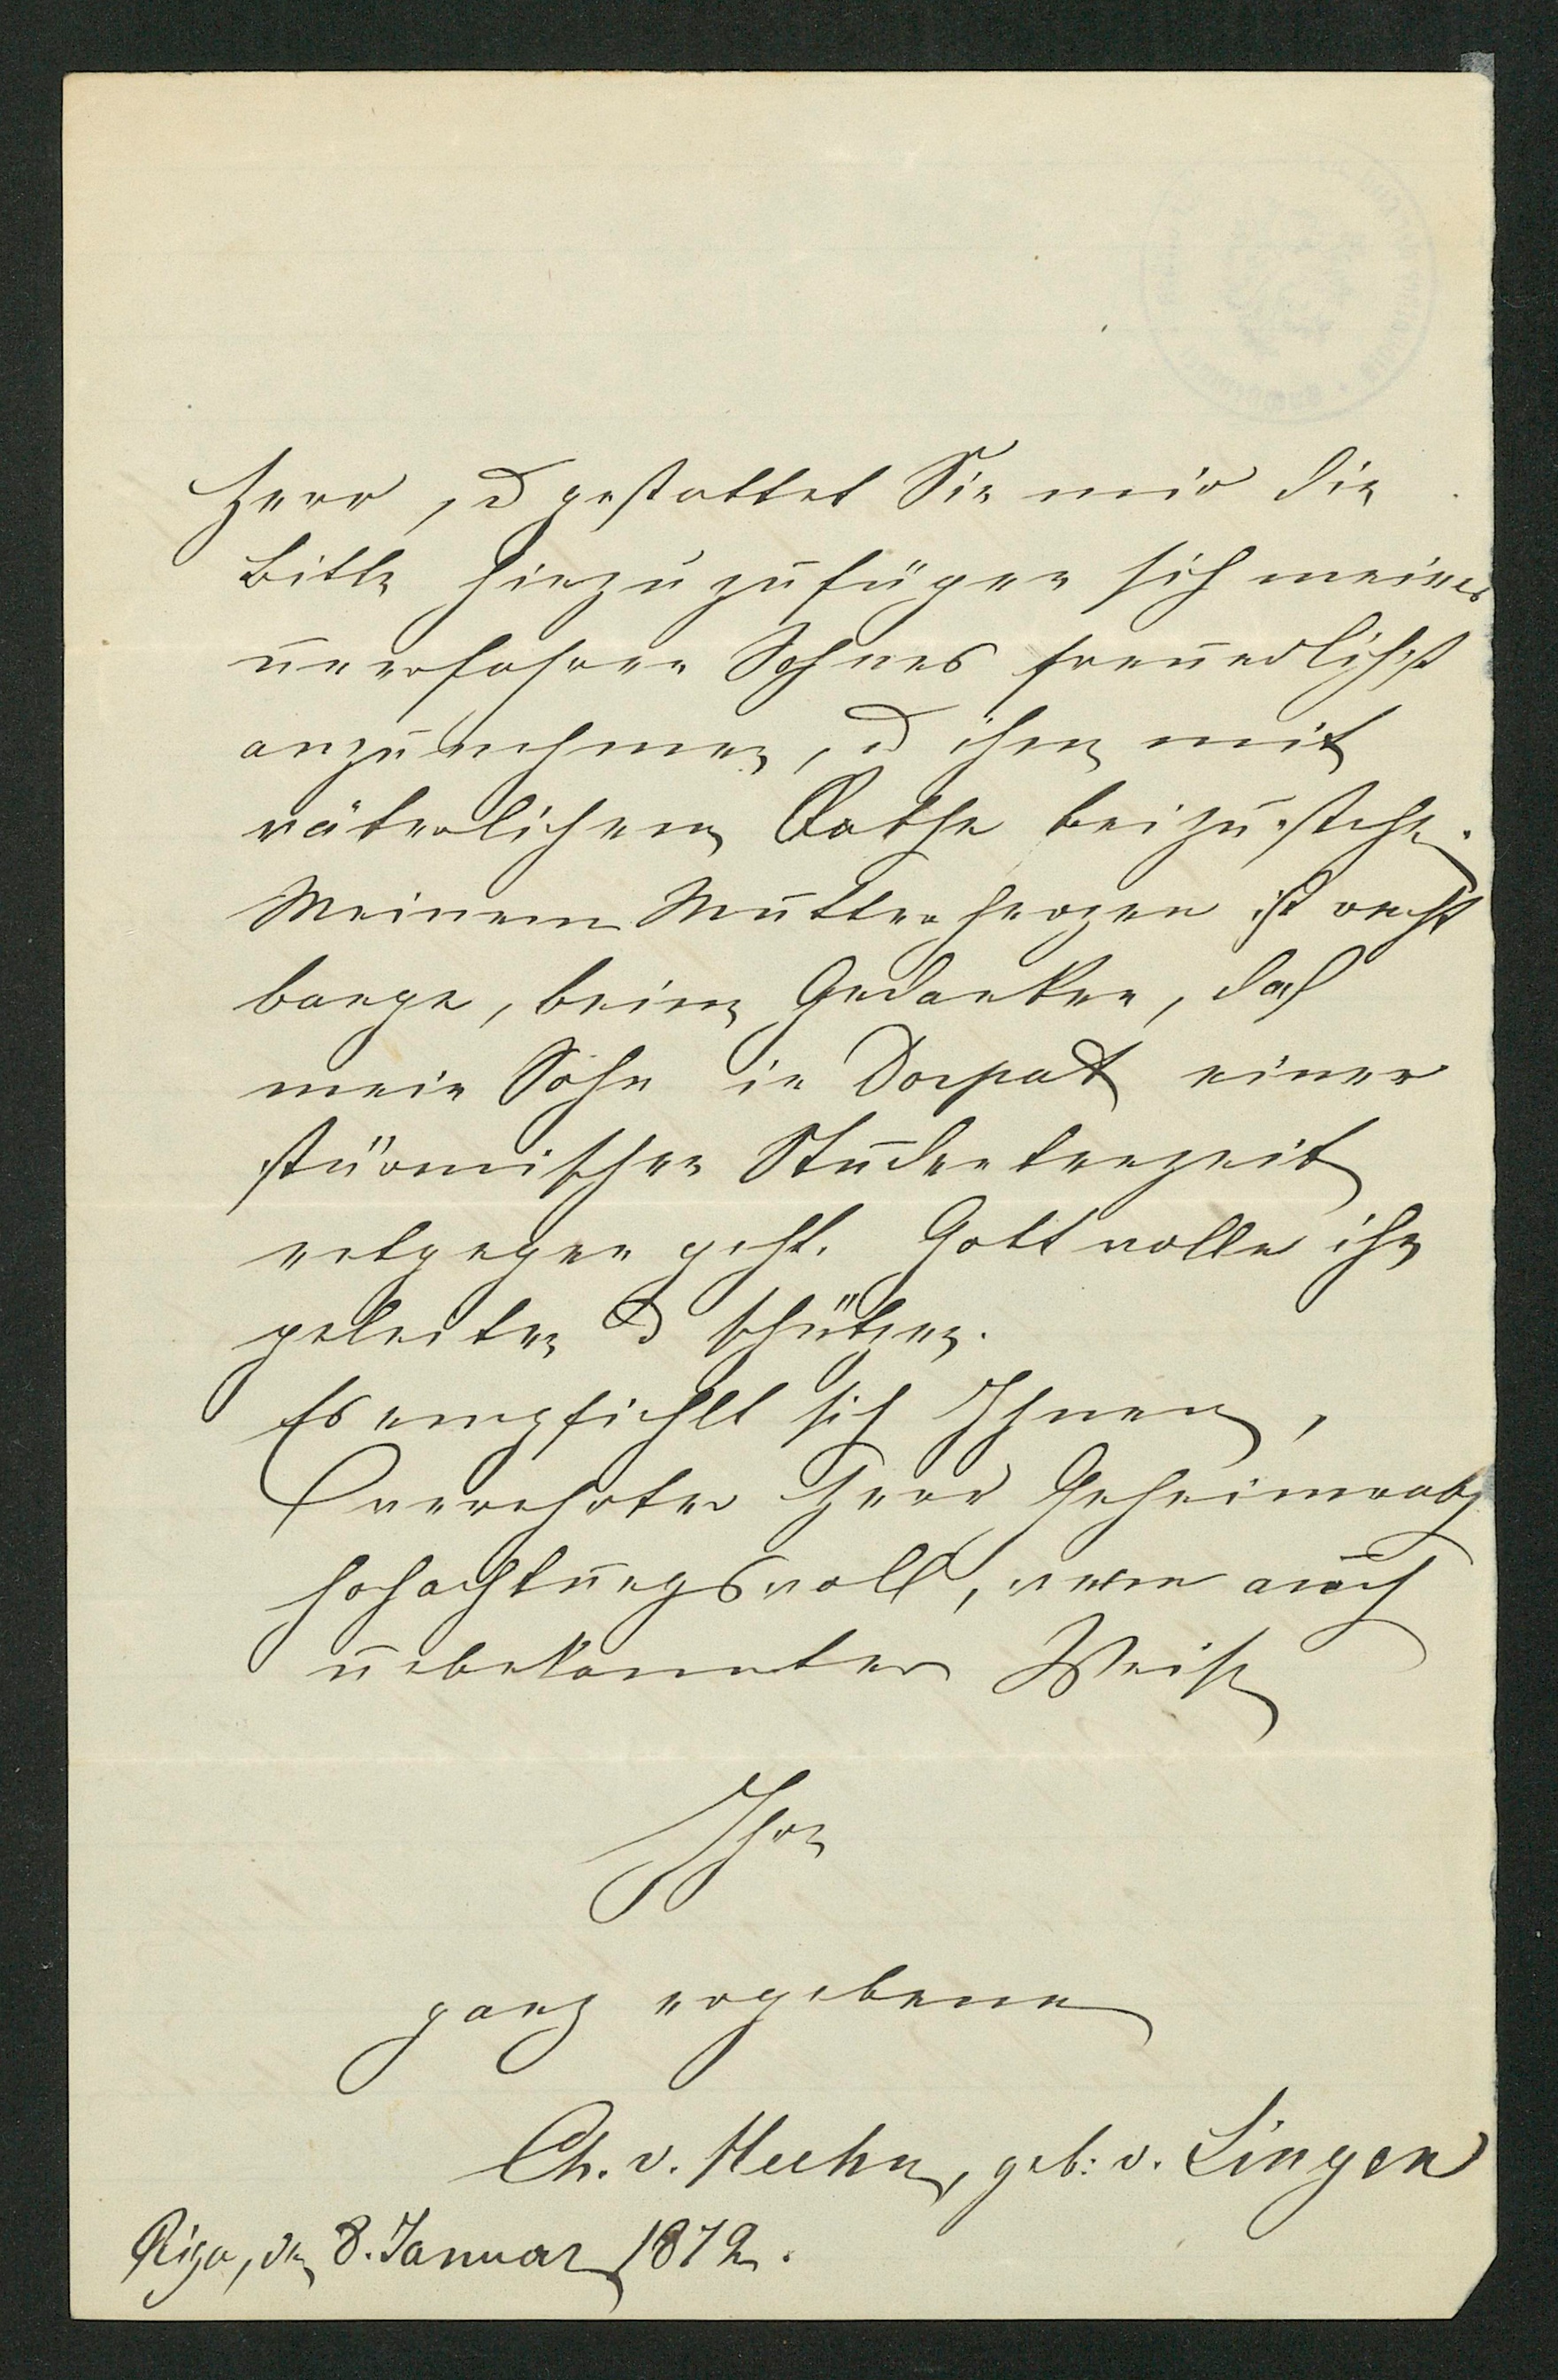 Herr, u gestattet Sie mir die
Bitte hinzuzufügen sich meines
unerfahren Sohnes freundlichst
anzunehmen, u ihm mit
väterlichem Rathe beizustehn.
Meinem Mutterherzen ist recht
bange, beim Gedanken, daß
mein Sohn in Dorpat einer
stürmischen Studentenzeit
entgegen geht. Gott wolle ihn
geleiten u schützen.
Es empfiehlt sich Ihnen,
verehrter Herr Geheimrath
hochachtungsvoll, wenn auch
unbekannter Weise
Ihre
ganz ergebene
Ch. v. Huhn, geb: v. Lingen
Riga, den 8. Januar 1872.